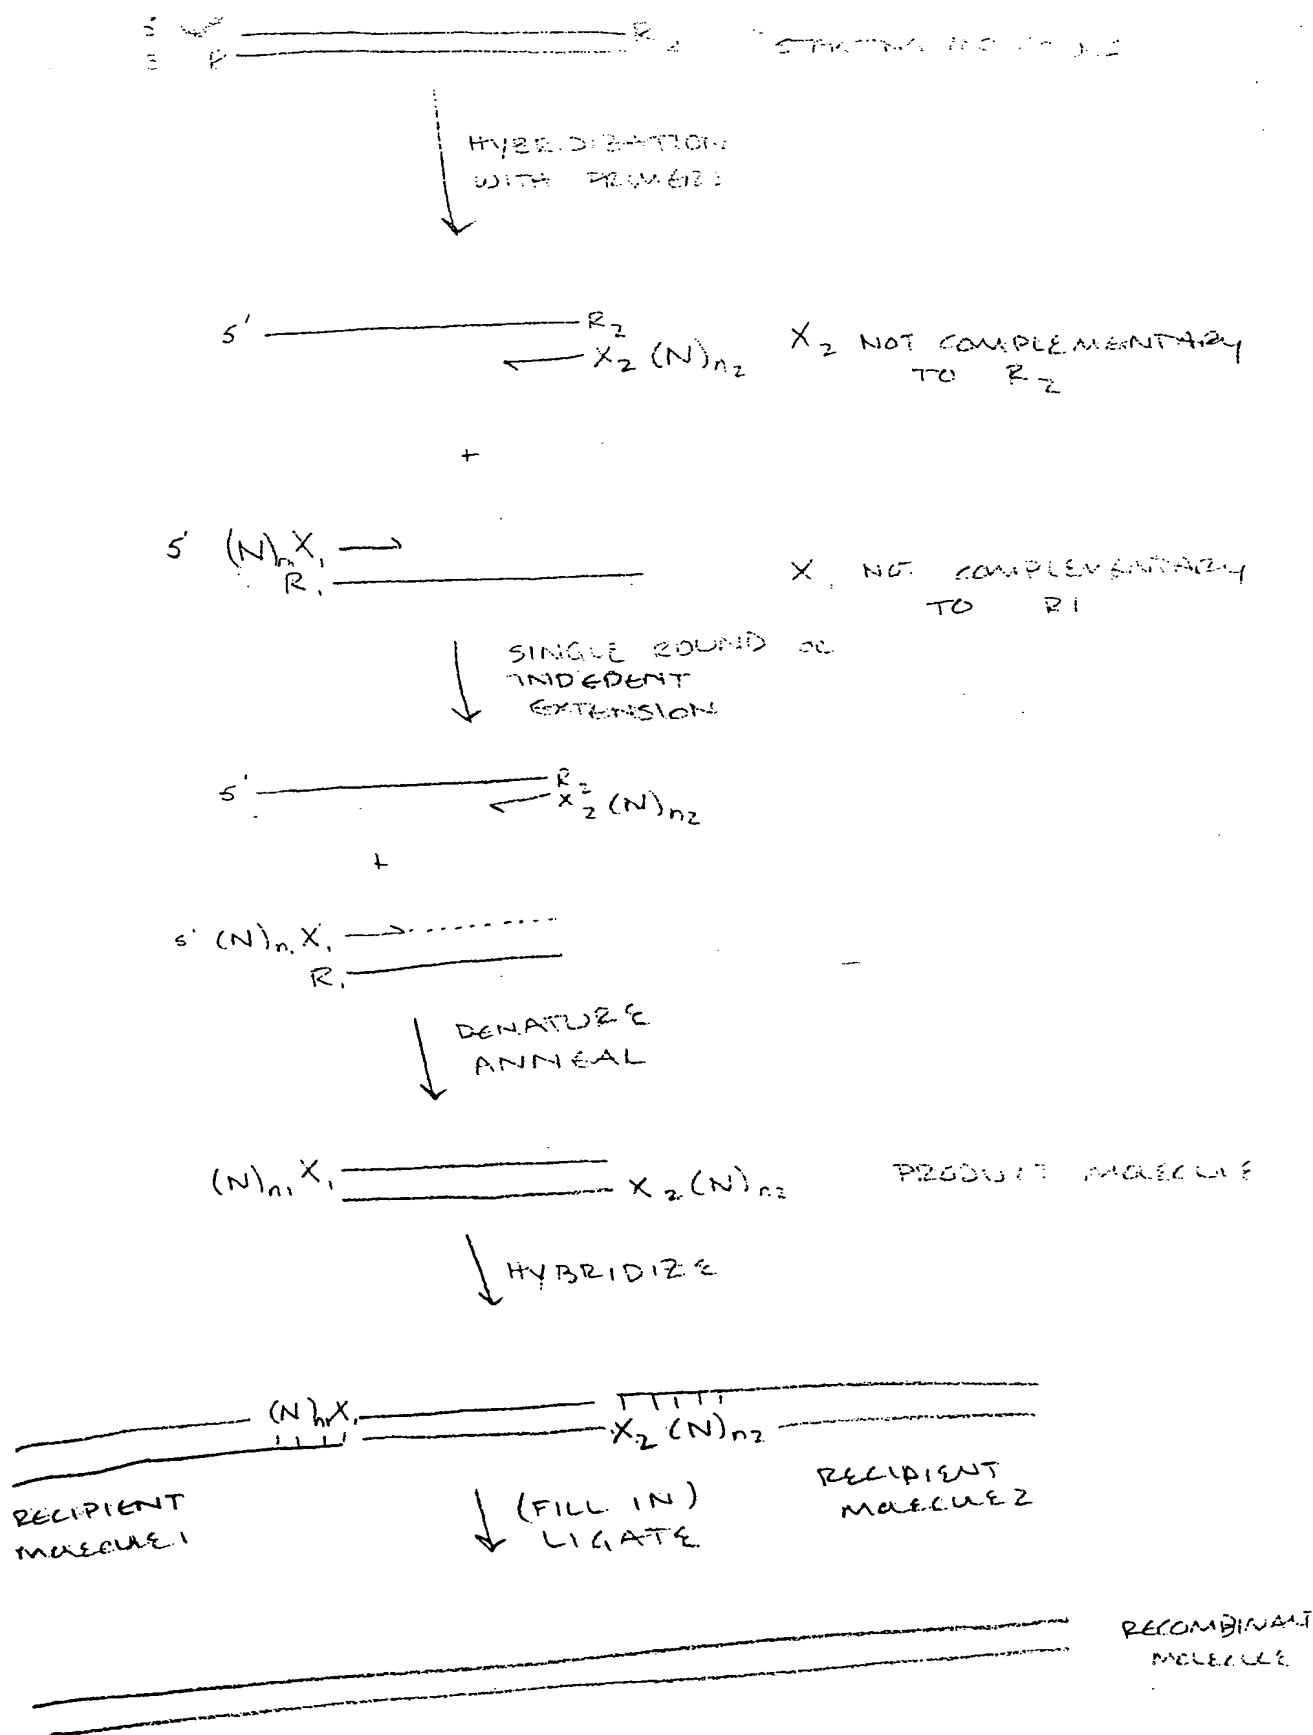 R 2
HYBRIDIZATION
WITH PRIMERS
5' R2
X2 (N)n2
X2 NOT COMPLEMENTARY
TO R2
+
5' (N)n1 X1
R1
X1 NOT COMPLEMENTARY
TO R1
SINGLE ROUND OR
INDEDENT
EXTENSION
5' R2
X2 (N)n2
+
5' (N)n1 X1
R1
DENATURE
ANNEAL
(N)n1 X1
X2 (N)n2
PRODUCT MOLECULE
HYBRIDIZE
(N)n1 X1
X2 (N)n2
RECIPIENT
MOLECULE 1
RECIPIENT
MOLECULE 2
(FILL IN)
LIGATE
RECOMBINANT
MOLECULE